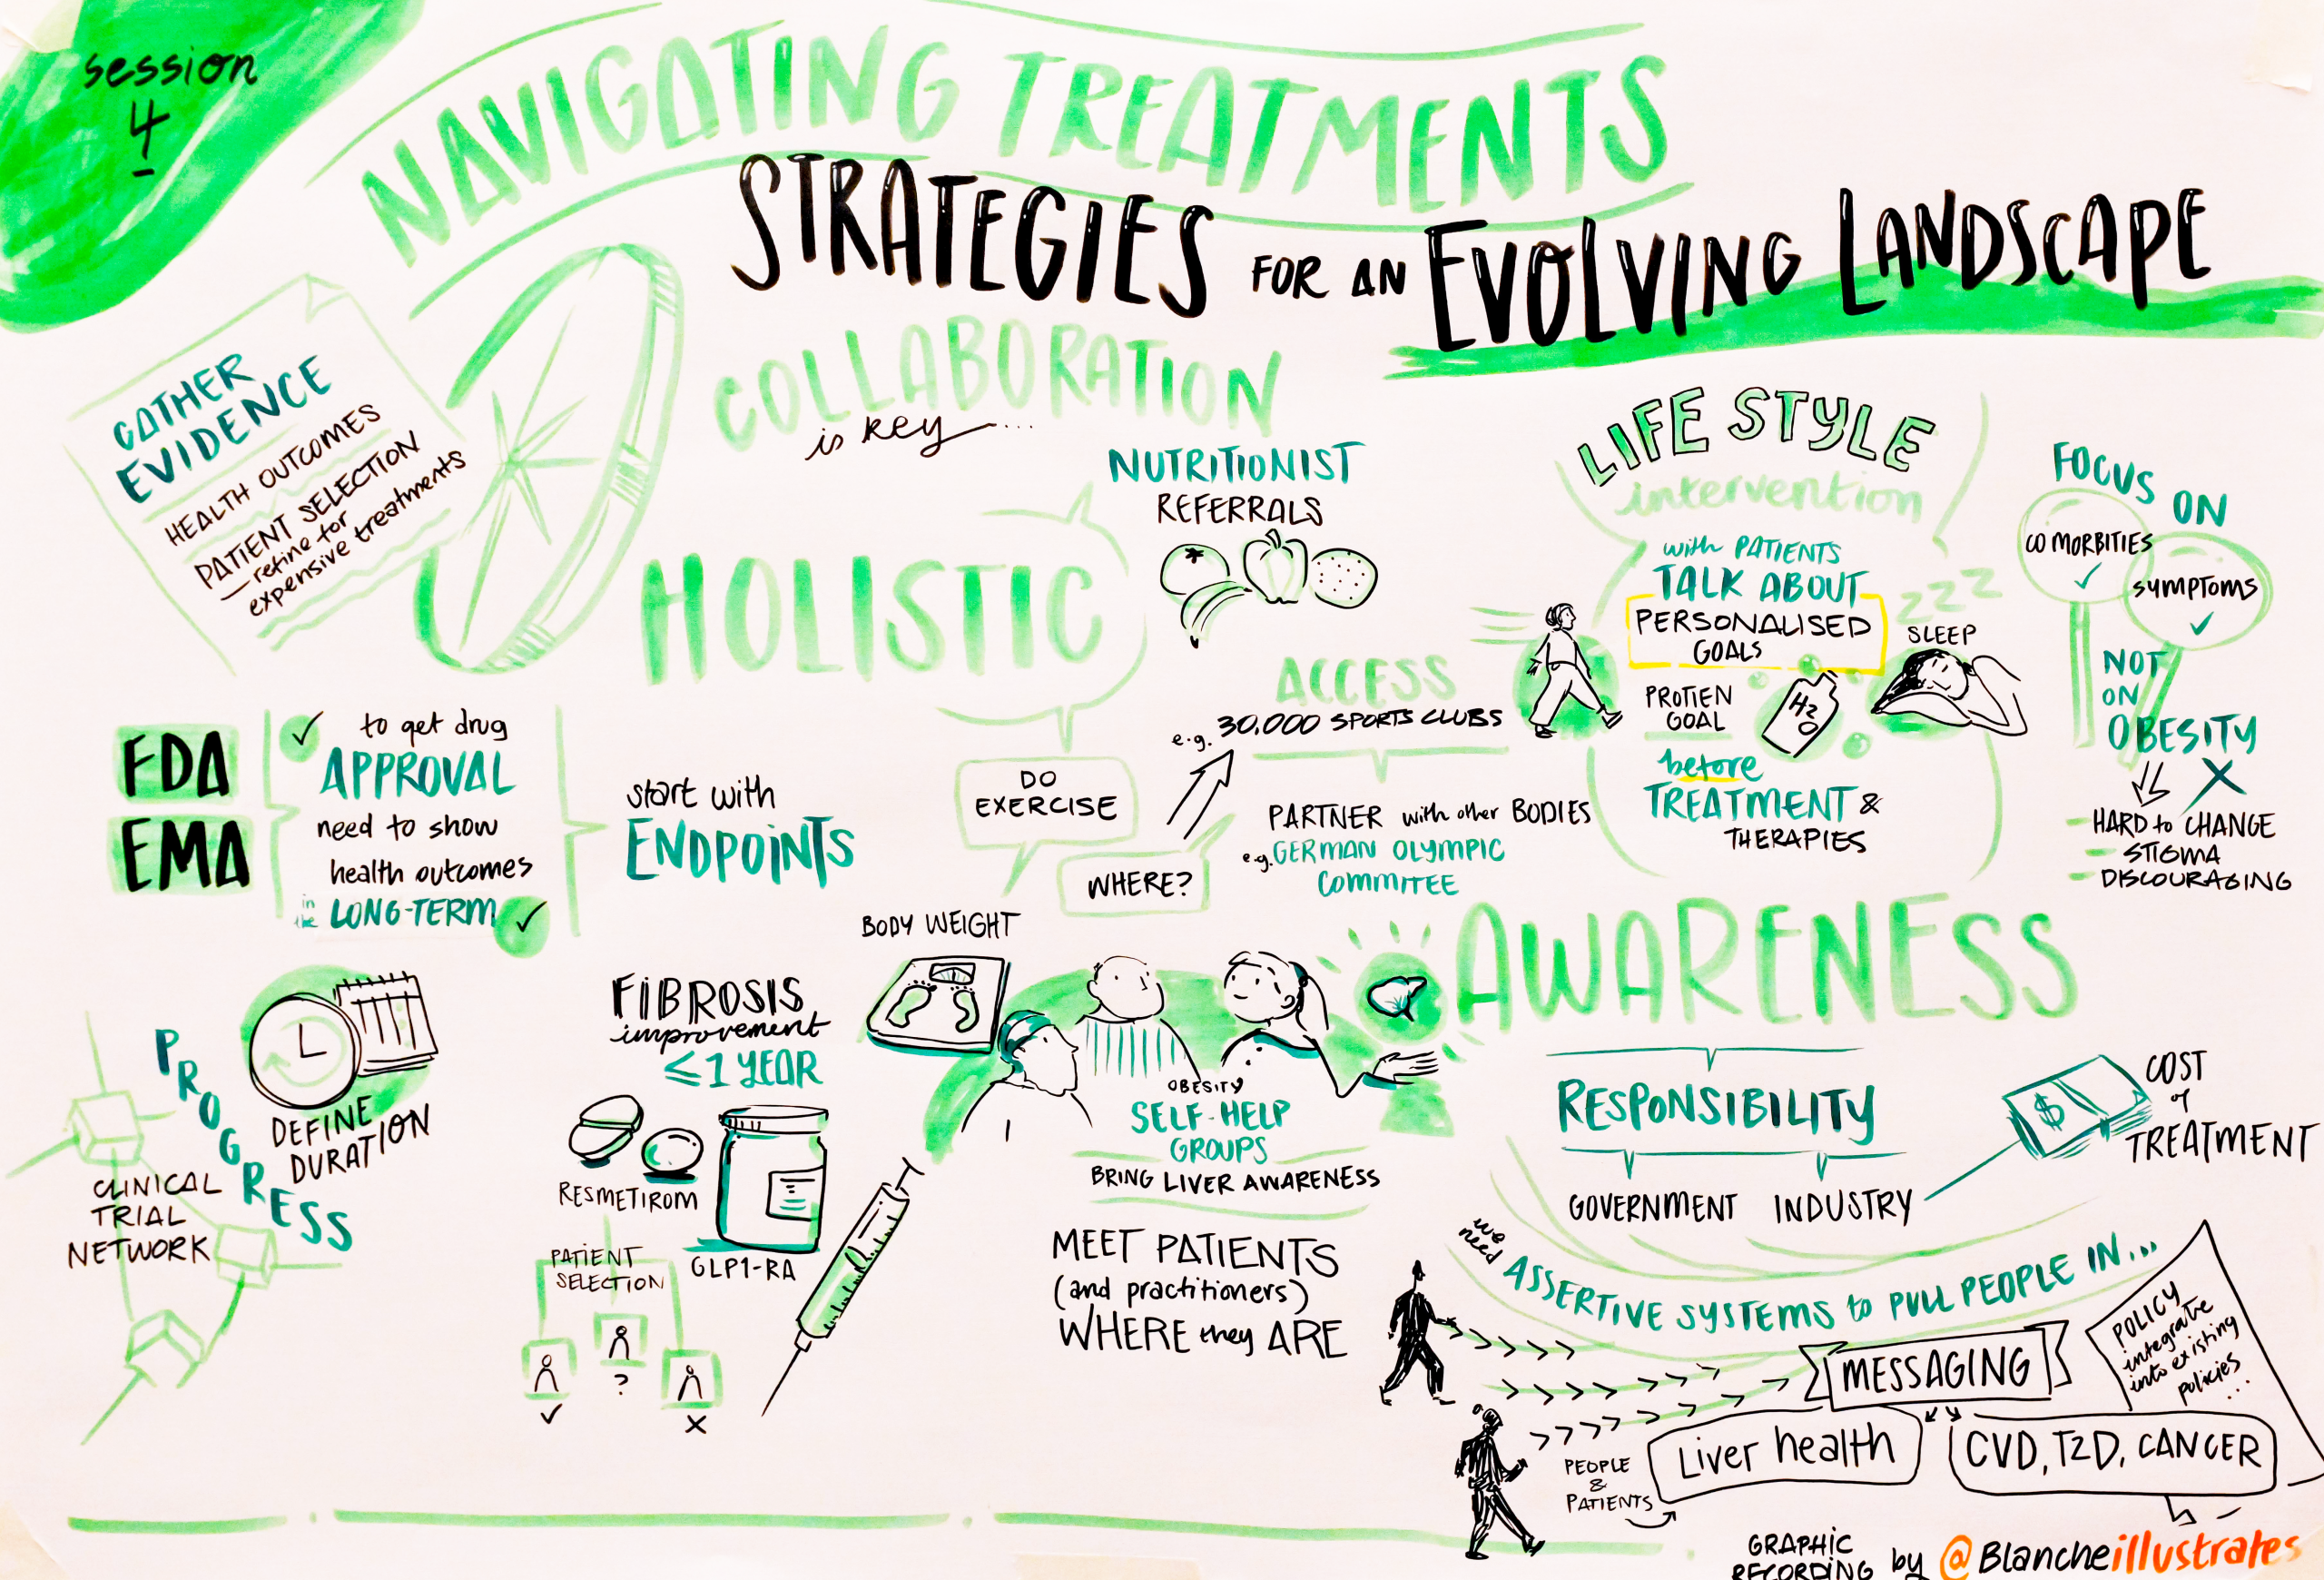 session
4
NAVIGATING TREATMENTS
STRATEGIES FOR AN EVOLVING LANDSCAPE
GATHER
EVIDENCE
HEALTH OUTCOMES
PATIENT SELECTION
- refine for
expensive treatments
COLLABORATION
is key ...
HOLISTIC
NUTRITIONIST
REFERRALS
LIFE STYLE
intervention
with PATIENTS
TALK ABOUT
PERSONALISED
GOALS
PROTIEN
GOAL
H2
O
ZZZ
SLEEP
before
TREATMENT &
THERAPIES
FOCUS
ON
CO MORBITIES
✓
SYMPTOMS
✓
NOT
ON
OBESITY
X
- HARD to CHANGE
- STIGMA
- DISCOURAGING
FDA
EMA
✓ to get drug
APPROVAL
need to show
health outcomes
in the LONG-TERM ✓
start with
ENDPOINTS
ACCESS
e.g. 30,000 SPORTS CLUBS
DO
EXERCISE
WHERE?
PARTNER with other BODIES
e.g. GERMAN OLYMPIC
COMMITEE
PROGRESS
DEFINE
DURATION
CLINICAL
TRIAL
NETWORK
FIBROSIS
improvement
≤1 YEAR
RESMETIROM
GLP1-RA
PATIENT
SELECTION
✓
?
X
BODY WEIGHT
OBESITY
SELF-HELP
GROUPS
BRING LIVER AWARENESS
MEET PATIENTS
(and practitioners)
WHERE they ARE
AWARENESS
RESPONSIBILITY
GOVERNMENT INDUSTRY
$
COST
of
TREATMENT
we
need
ASSERTIVE SYSTEMS to PULL PEOPLE IN...
MESSAGING
POLICY
integrate
into existing
policies
...
PEOPLE
&
PATIENTS
Liver health
CVD, T2D, CANCER
GRAPHIC
RECORDING by @Blancheillustrates